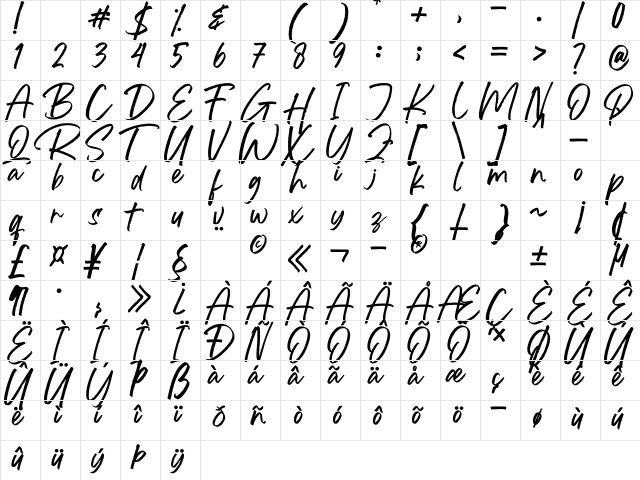 ! # $ % & ( ) * + , - . / 0
1 2 3 4 5 6 7 8 9 : ; < = > ? @
A B C D E F G H I J K L M N O P
Q R S T U V W X Y Z [ \ ]
a b c d e f g h i j k l m n o p
q r s t u v w x y z { } ~ ¡ ¢
£ ¤ ¥ ¦ § © « ¬ ® ± µ
¶ · ¸ » ¿ À Á Â Ã Ä Å Æ Ç È É Ê
Ë Ì Í Î Ï Ð Ñ Ò Ó Ô Õ Ö × Ø Ù Ú
Û Ü Ý Þ ß à á â ã ä å æ ç è é ê
ë ì í î ï ð ñ ò ó ô õ ö ø ù ú
û ü ý þ ÿ